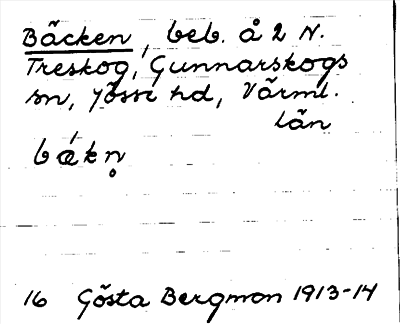 Bäcken, beb. å 2 N.
Treskog, Gunnarskogs
sn, Jösse hd, Värml.
län
bǽkn̥
16 Gösta Bergman 1913-14